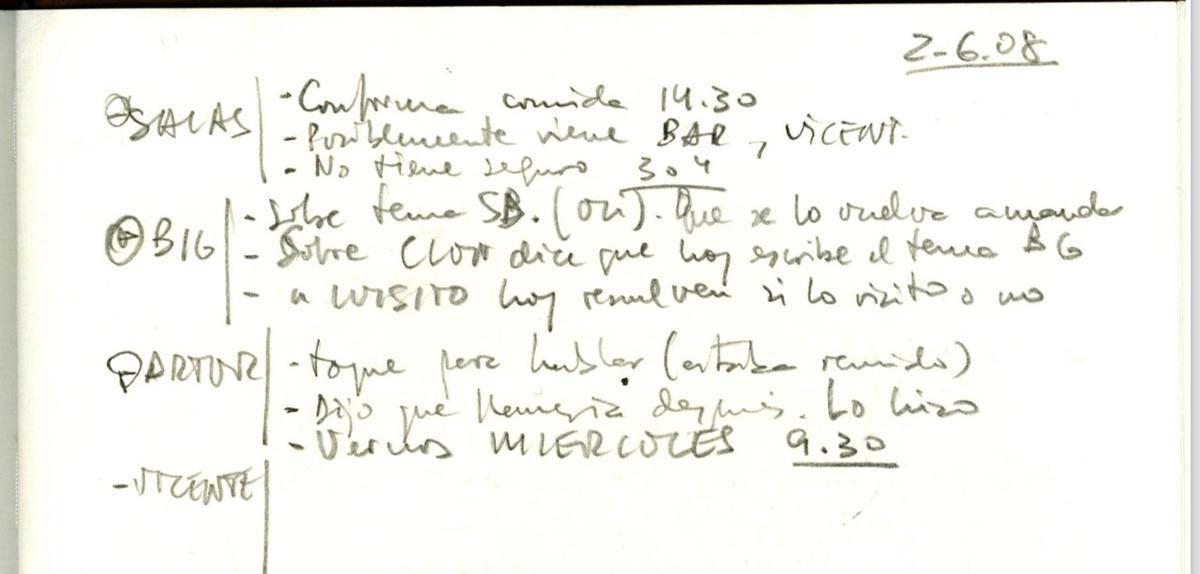 2-6.08
SALAS - Confirma comida 14.30
- Posiblemente viene BAR, VICENT.
- No tiene seguro 3 o 4
BIG - Sobre tema SB. (Ori). Que se lo vuelva a mandar
- Sobre CLON dice que hoy escribe el tema BG
- a LUISITO hoy resuelven si lo visito o no
ARTUR - toque para hablar (estaba reunido)
- Dijo que llamaría después. Lo hizo
- Vernos MIERCOLES 9.30
- VICENTE